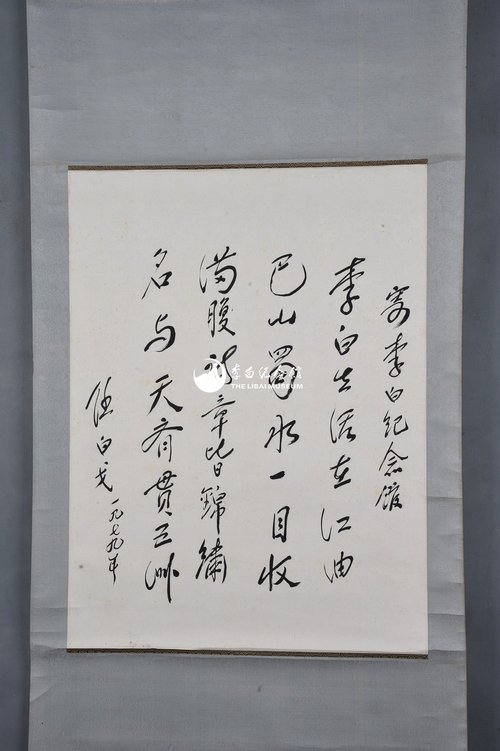 寄李白纪念馆
李白生活在江油
巴山蜀水一目收
满腹诗章皆锦繡
名与天齐贯五洲
任白戈 一九七九年
李白纪念馆
THE LIBAI MUSEUM